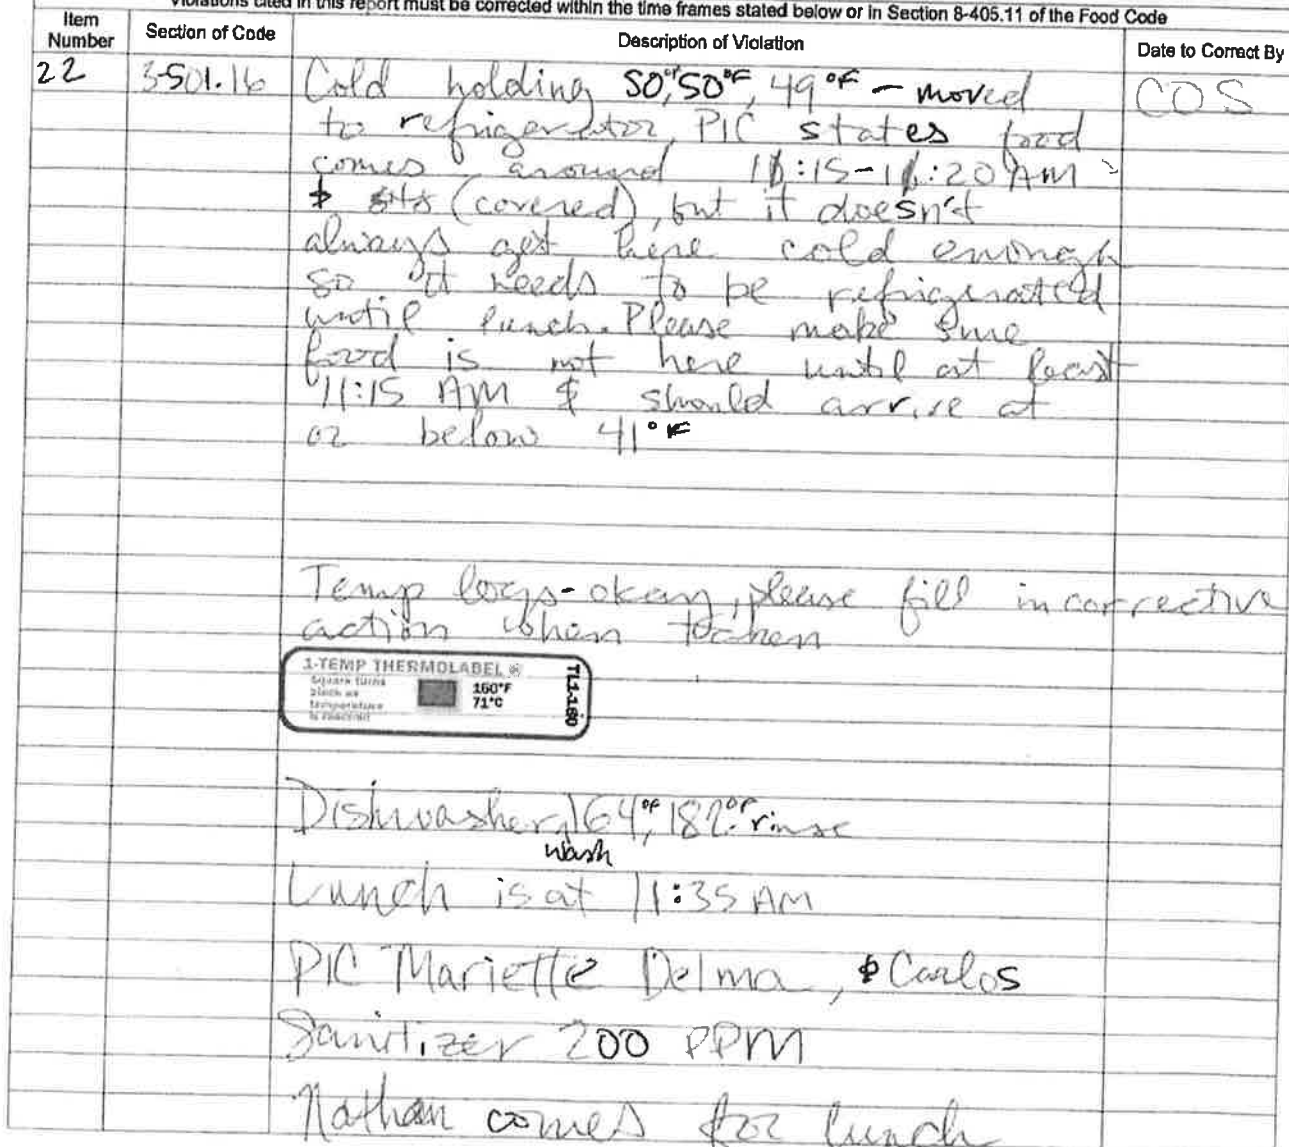 Violations cited in this report must be corrected within the time frames stated below or in Section 8-405.11 of the Food Code
Item Number Section of Code Description of Violation Date to Correct By
22 3-501.16 Cold holding 50°F, 50°F, 49°F - moved COS
to refrigerator, PIC states food
comes around 11:15-11:20 AM
& (covered), but it doesn't
always get here cold enough
so it needs to be refrigerated
until lunch. Please make sure
food is not here until at least
11:15 AM & should arrive at
or below 41°F
Temp logs - okay, please fill in corrective
action when taken
1-TEMP THERMOLABEL ®
Square turns
black as
temperature
is reached
160°F
71°C
TL1-160
Dishwasher, 164°F, 182°F rinse
wash
Lunch is at 11:35 AM
PIC Mariette Delma, & Carlos
Sanitizer 200 PPM
Nathan comes for lunch